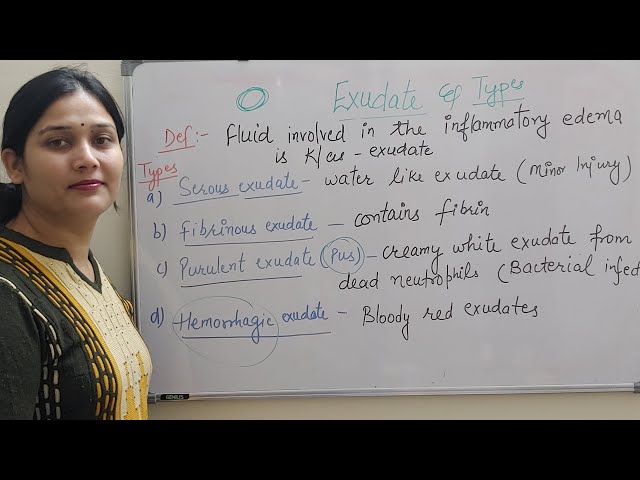 Exudate & Types
Def:- Fluid involved in the inflammatory edema
is K/as - exudate
Types
a) Serous exudate - water like exudate (Minor Injury)
b) fibrinous exudate - contains fibrin
c) Purulent exudate (Pus) - creamy white exudate from
dead neutrophils (Bacterial infec
d) Hemorrhagic exudate - Bloody red exudates
GENIUS